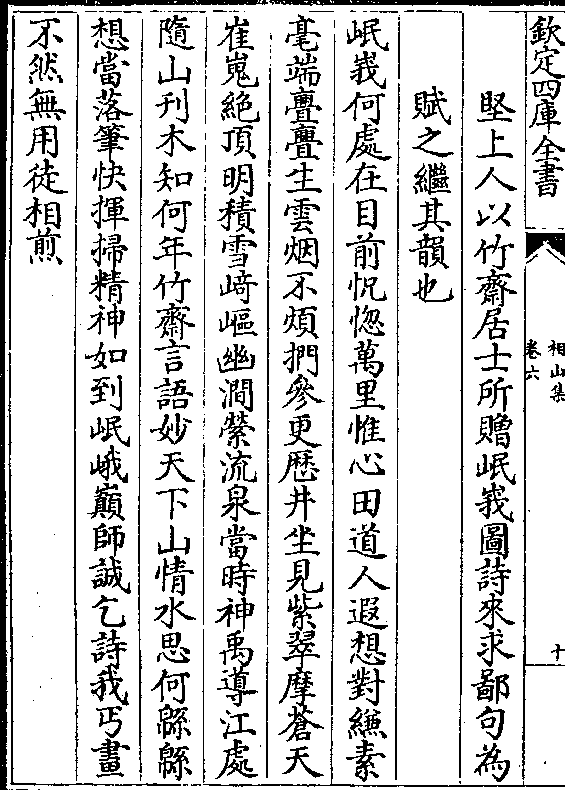 欽定四庫全書
相山集
卷六
十
堅上人以竹齋居士所贈岷峩圖詩來求鄙句為
賦之繼其韻也
岷峩何處在目前怳惚萬里惟心田道人遐想對縑素
毫端亹亹生雲烟不煩捫參更歴井坐見紫翠摩蒼天
崔嵬絶頂明積雪﨑嶇幽澗縈流泉當時神禹導江處
隨山刋木知何年竹齋言語妙天下山情水思何緜緜
想當落筆快揮掃精神如到岷峨巔師誠乞詩我丐畫
不然無用徒相煎